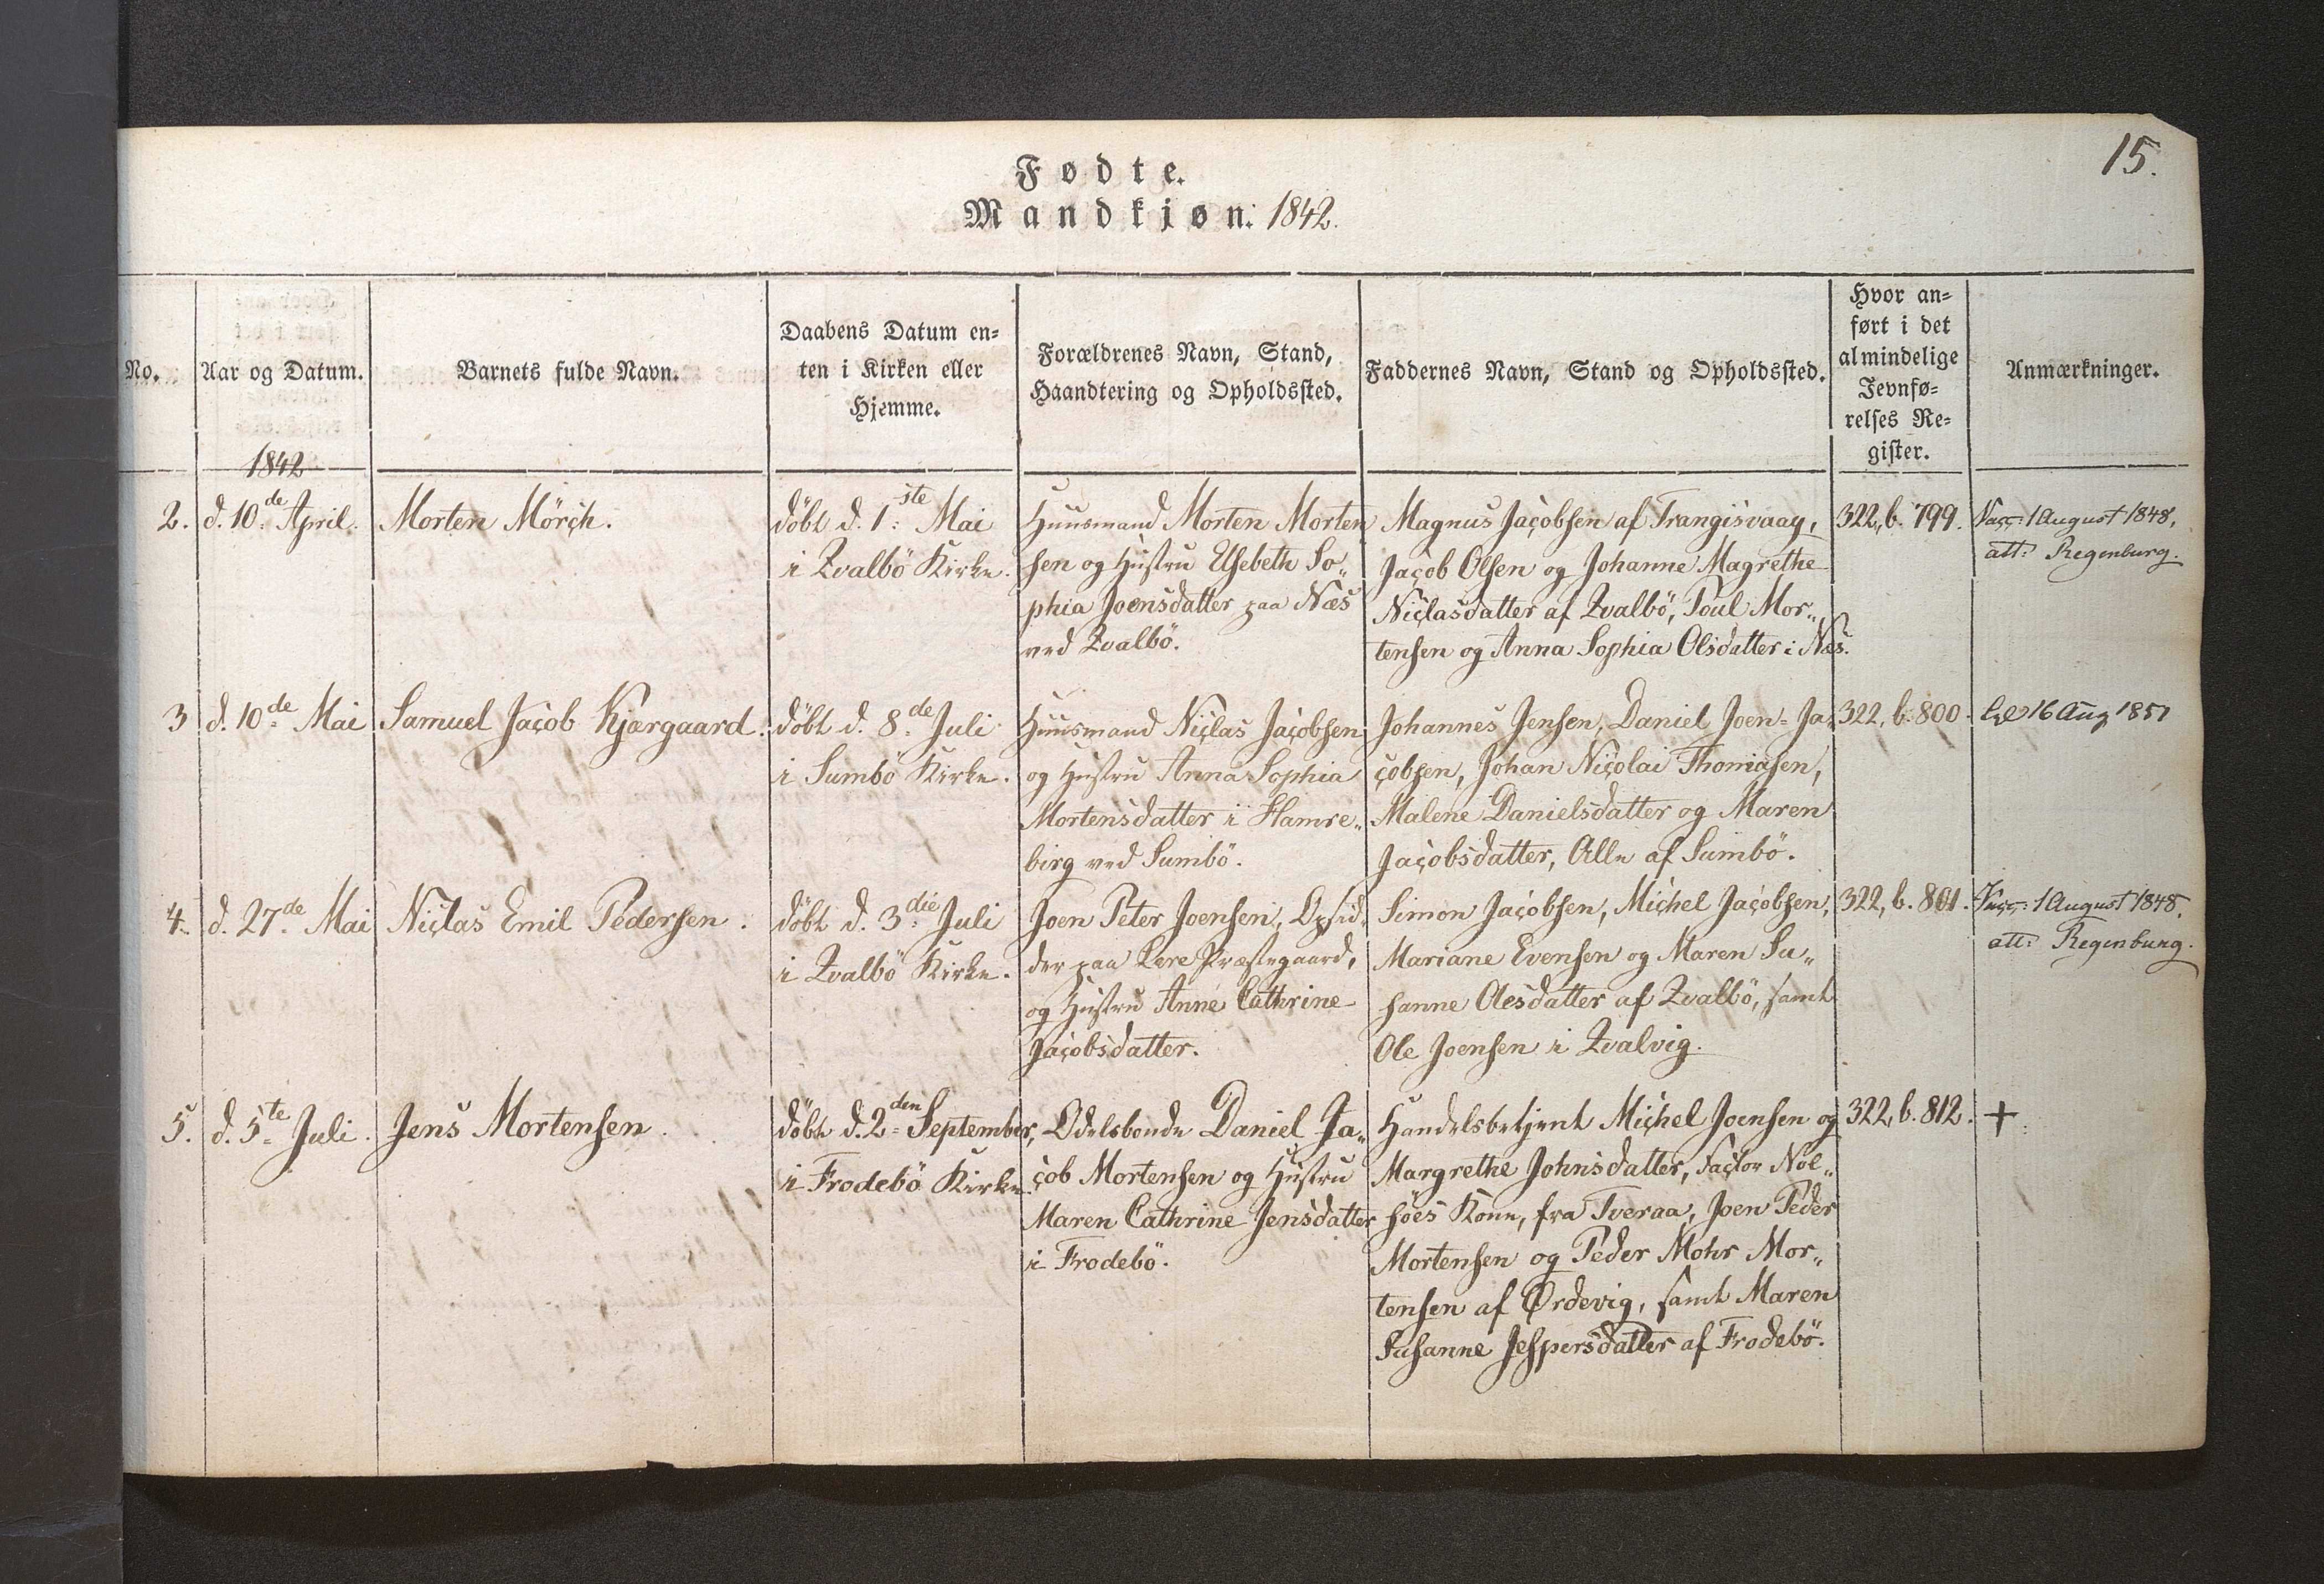 15.
Fødte.
Mandkjøn. 1842.
No.
Aar og Datum.
1842
Barnets fulde Navn.
Daabens Datum en-
ten i Kirken eller
Hjemme.
Forældrenes Navn, Stand,
Haandtering og Opholdssted.
Faddernes Navn, Stand og Opholdssted.
Hvor an-
ført i det
almindelige
Jevnfø-
relses Re-
gister.
Anmærkninger.
2.
d. 10de April.
Morten Mörch.
döbt d. 1ste Mai
i Qvalbö Kirke.
Huusmand Morten Morten
sen og Hustru Elsebeth So„
phia Joensdatter paa Næs
ved Qvalbö.
Magnus Jacobsen af Trangisvaag,
Jacob Olsen og Johanne Magrethe
Niclasdatter af Qvalbö, Poul Mor„
tensen og Anna Sophia Olsdatter i Næs.
322, b. 799.
Vacc: 1 August 1848,
att: Regenburg.
3
d. 10de Mai
Samuel Jacob Kjærgaard.
döbt d. 8de Juli
i Sumbö Kirke.
Huusmand Niclas Jacobsen
og Hustru Anna Sophia
Mortensdatter i Hamre„
birg ved Sumbö.
Johannes Jensen, Daniel Joen-Ja„
cobsen, Johan Nicolai Thomasen,
Malene Danielsdatter og Maren
Jacobsdatter, Alle af Sumbö.
322, b. 800.
16 Aug 1851
4.
d. 27de Mai
Niclas Emil Pedersen.
döbt d. 3die Juli
i Qvalbö Kirke.
Joen Peter Joensen, Opsid„
der paa Lere Præstegaard,
og Hustru Anne Cathrine
Jacobsdatter.
Simon Jacobsen, Michel Jacobsen,
Mariane Evensen og Maren Su„
sanne Olesdatter af Qvalbö, samt
Ole Joensen i Qvalvig.
322, b. 801.
Vacc: 1 August 1848,
att: Regenburg.
5.
d. 5te Juli.
Jens Mortensen.
döbt d. 2den September,
i Frodebö Kirke.
Odelsbonde Daniel Ja„
cob Mortensen og Hustru
Maren Cathrine Jensdatter
i Frodebö.
Handelsbetjent Michel Joensen og
Margrethe Johnsdatter, Factor Nol„
söes Kone, fra Tveraa, Joen Peder
Mortensen og Peder Mohr Mor„
tensen af Ørdevig, samt Maren
Susanne Jespersdatter af Frodebö.
322, b. 812.
+